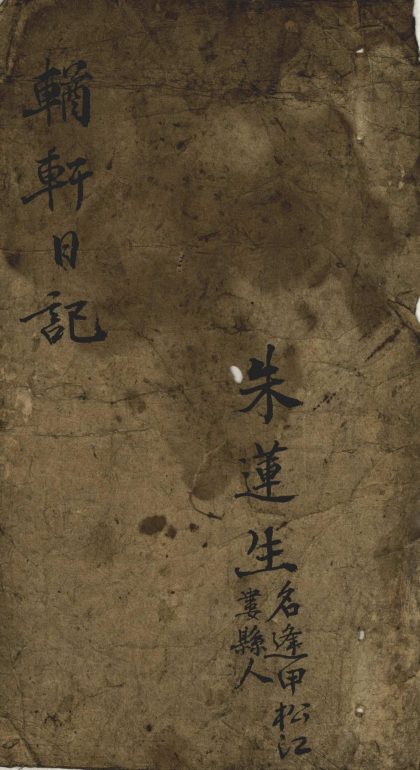 輶軒日記
朱蓮生
名逢甲松江
婁縣人